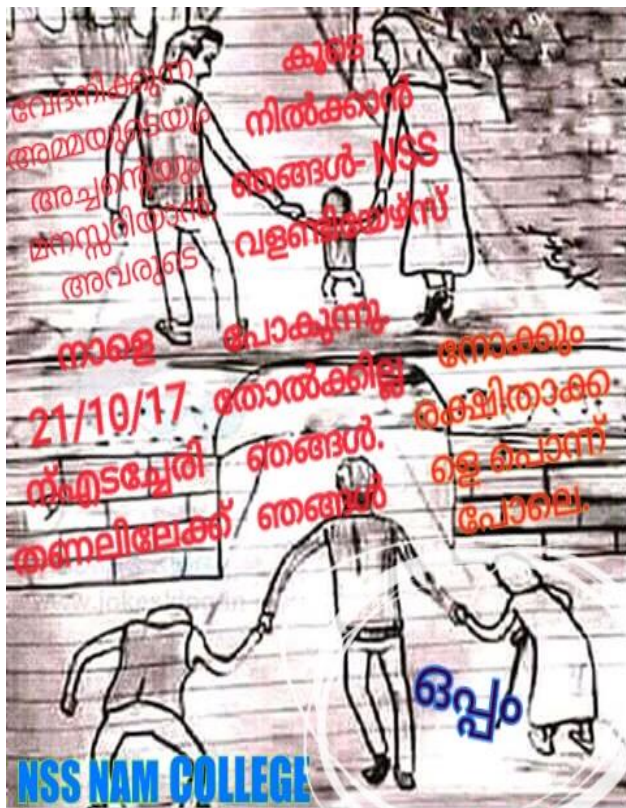 വേദനിക്കുന്ന
അമ്മയുടെയും
അച്ചന്റെയും
മനസ്സറിയാൻ
അവരുടെ
കൂടെ
നിൽക്കാൻ
ഞങ്ങൾ- NSS
വളണ്ടിയേഴ്സ്
നാളെ
21/10/17
ന്എടച്ചേരി
തണലിലേക്ക്
പോകുന്നു.
തോൽക്കില്ല
ഞങ്ങൾ.
ഞങ്ങൾ
നോക്കും
രക്ഷിതാക്ക
ളെ പൊന്ന്
പോലെ.
ഒപ്പം
NSS NAM COLLEGE